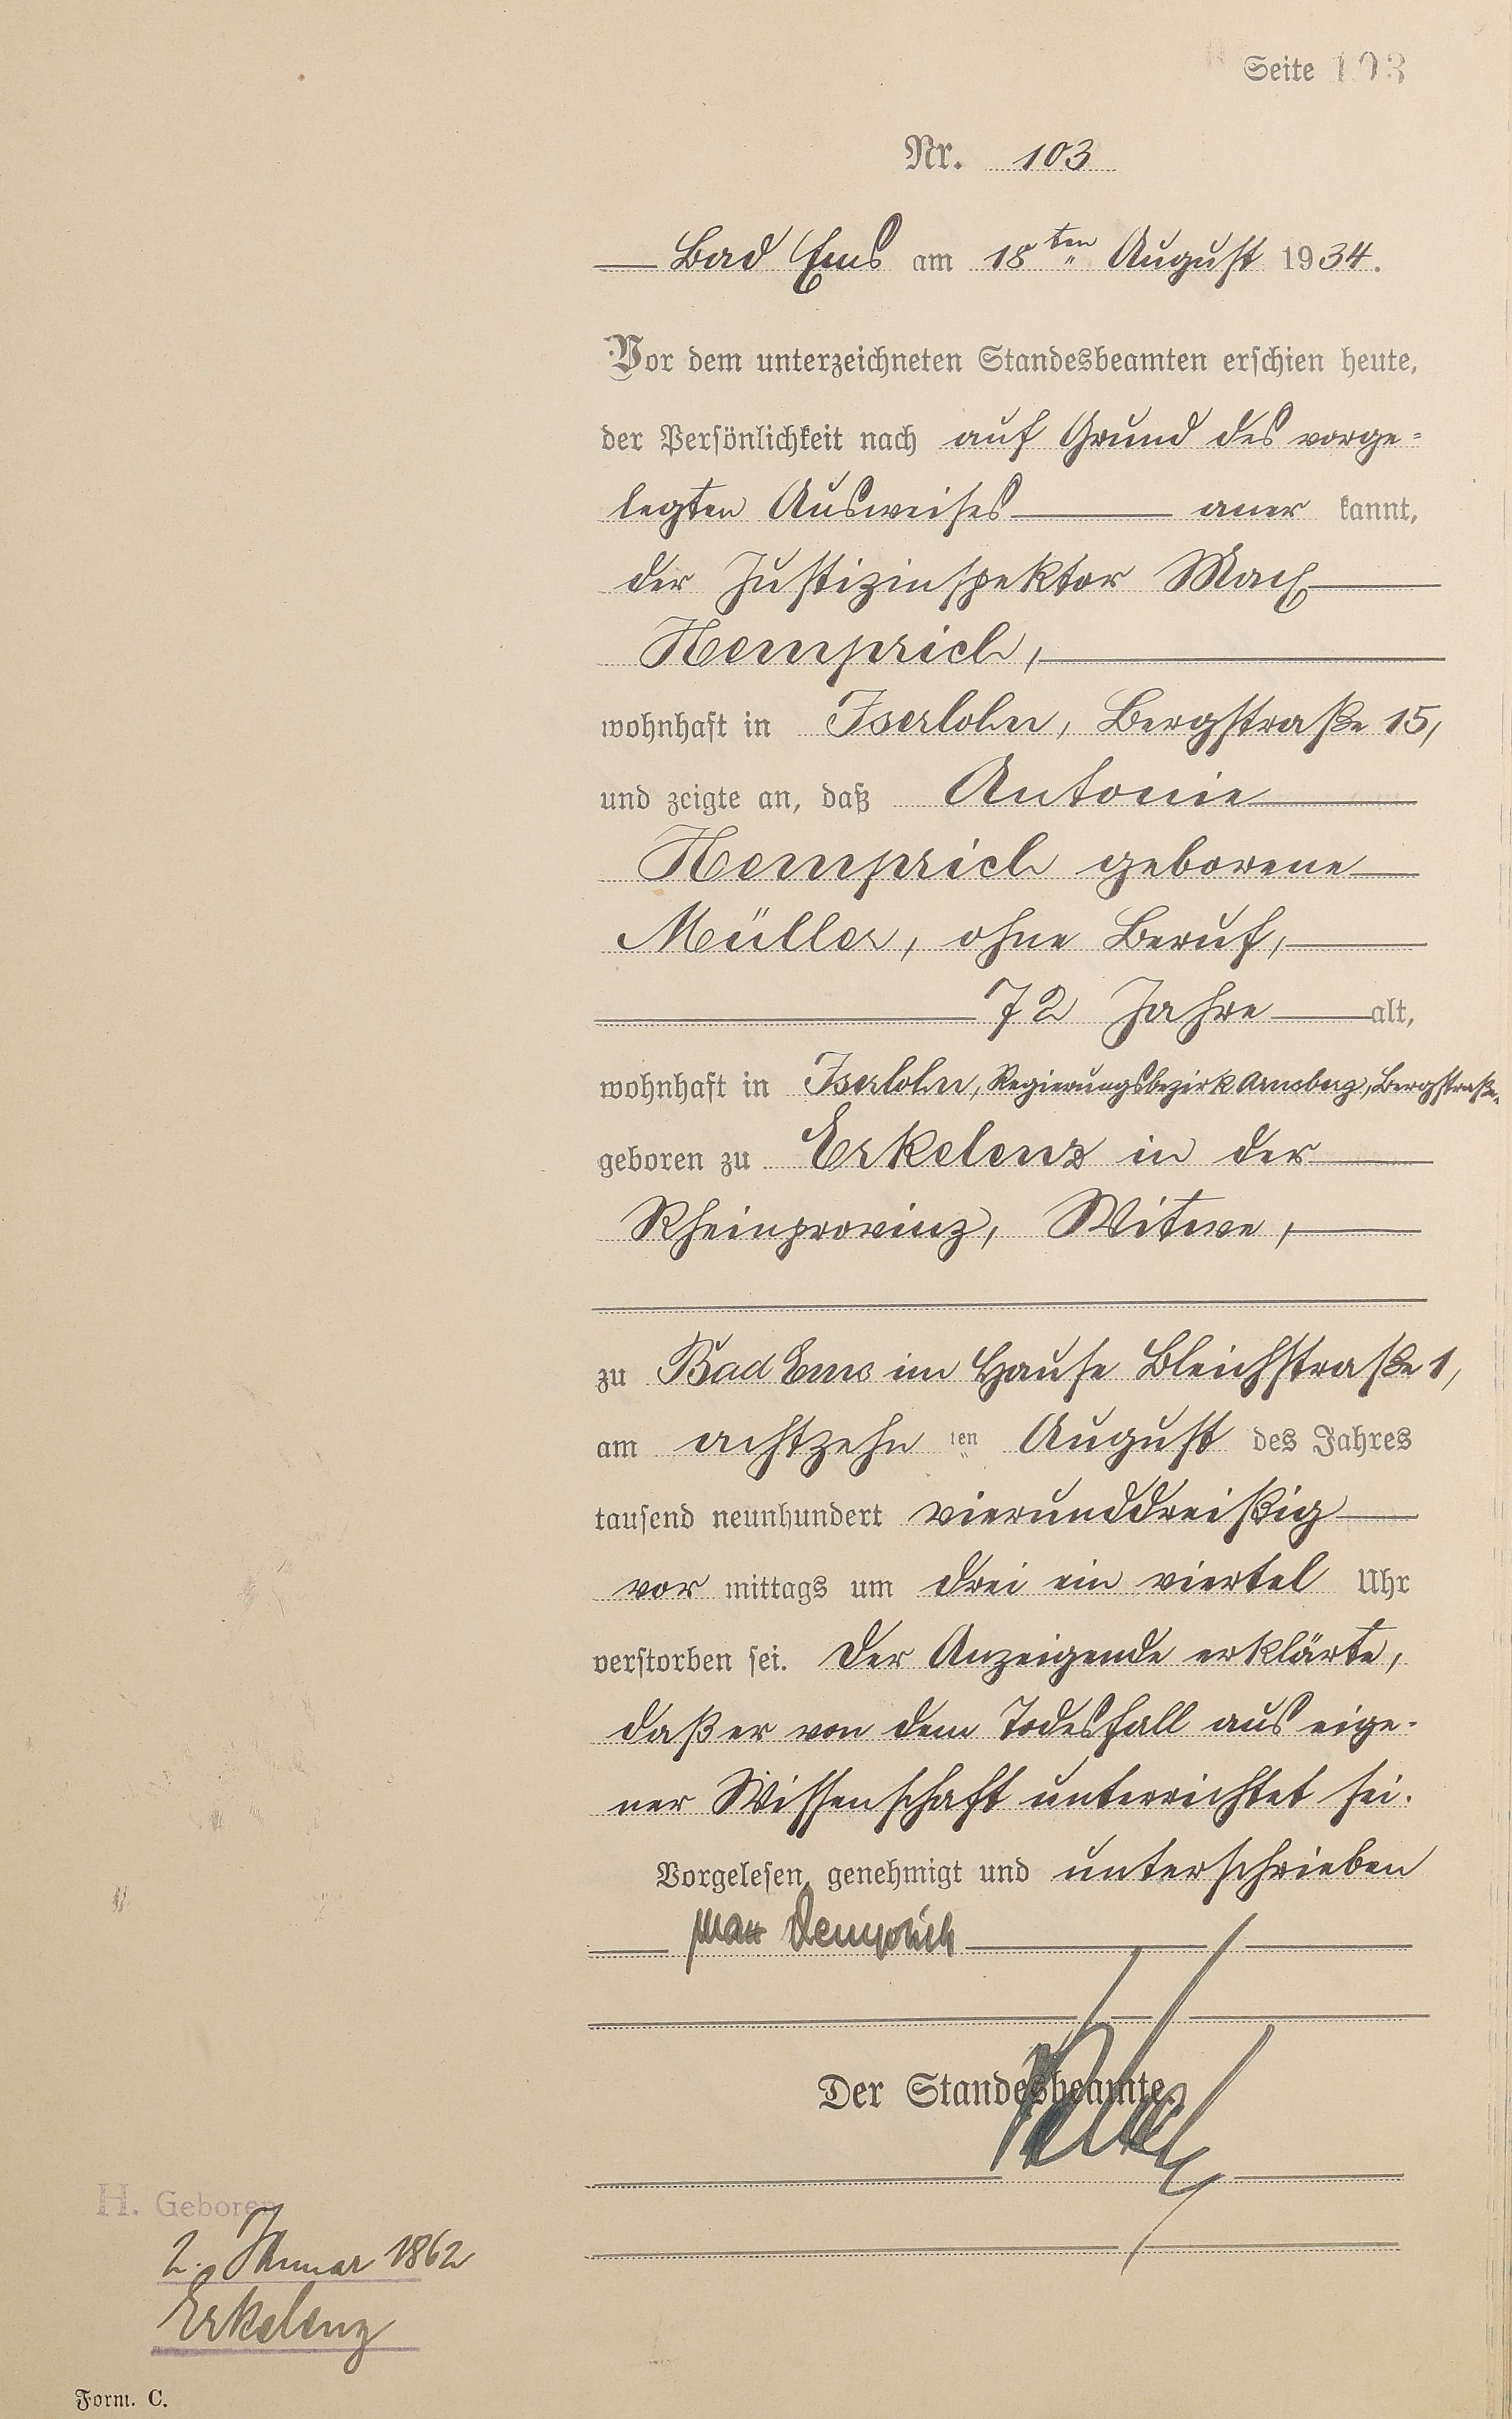 Seite 103
Nr. 103
Bad Ems am 18ten August 1934.
Vor dem unterzeichneten Standesbeamten erschien heute,
der Persönlichkeit nach auf Grund des vorge=
legten Ausweises aner kannt,
der Justizinspektor Max
Hemprich,
wohnhaft in Iserlohn, Bergstraße 15,
und zeigte an, daß Antonie
Hemprich geborene
Müller, ohne Beruf,
72 Jahre alt,
wohnhaft in Iserlohn, Regierungsbezirk Arnsberg, Bergstraße
geboren zu Erkelenz in der
Rheinprovinz, Witwe,
zu Bad Ems im Hause Bleichstraße 1,
am achtzehn ten August des Jahres
tausend neunhundert vierunddreißig
vor mittags um drei ein viertel Uhr
verstorben sei. Der Anzeigende erklärte,
daß er von dem Todesfall aus eige-
ner Wissenschaft unterrichtet sei.
Vorgelesen, genehmigt und unterschrieben
Max Hemprich
Der Standesbeamte.
H. Geboren
2. Januar 1862
Erkelenz
Form. C.